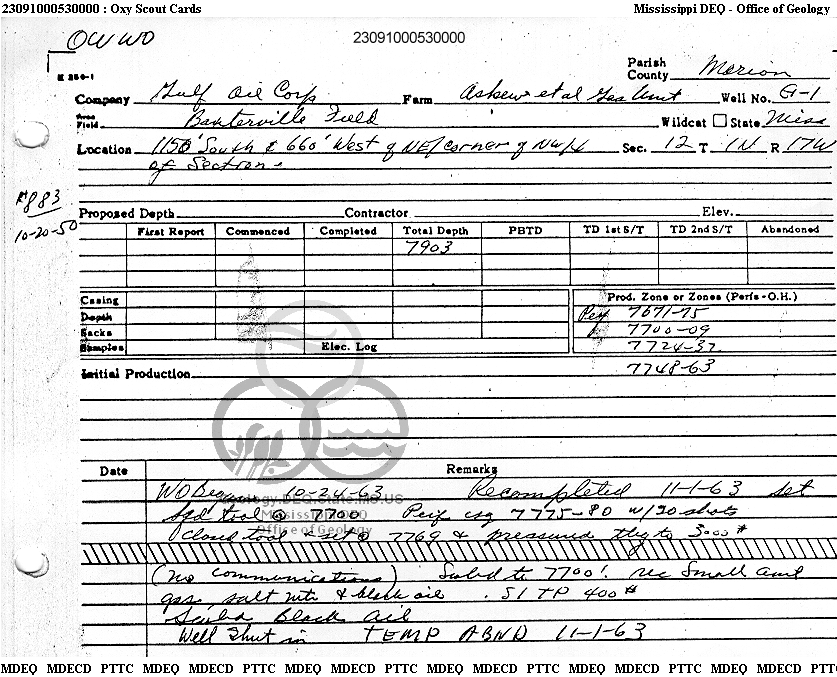 23091000530000 : Oxy Scout Cards Mississippi DEQ - Office of Geology
OWWO 23091000530000
K 250-1
Parish
County Marion
Company Gulf Oil Corp Farm Askew et al Gas Unit Well No. G-1
Area
Field Baxterville Field Wildcat State Miss
Location 1150' South & 660' West of NE/Corner of NW/4 Sec. 12 T 1N R 17W
of Section
#883
10-20-50
Proposed Depth Contractor Elev.
First Report Commenced Completed Total Depth PBTD TD 1st S/T TD 2nd S/T Abandoned
7903
Casing Prod. Zone or Zones (Perfs-O.H.)
Depth Perf 7671-75
Sacks 7700-09
Samples Elec. Log 7724-37
Initial Production 7748-63
Date Remarks
WO Began 10-24-63 Recompleted 11-1-63 set
tool @ 7700 Perf csg 7775-80 w/20 shots
closed tool & set @ 7769 & pressured tbg to 3000#
(no communications) Swbd to 7700'. rec Small amt
gas, salt wtr & black oil . SITP 400#
Swbd Black Oil
Well Shut in TEMP ABND 11-1-63
Geology.DEQ.State.MS.US
Mississippi DEQ
Office of Geology
MDEQ MDECD PTTC MDEQ MDECD PTTC MDEQ MDECD PTTC MDEQ MDECD PTTC MDEQ MDECD PTTC MDEQ MDECD PTT